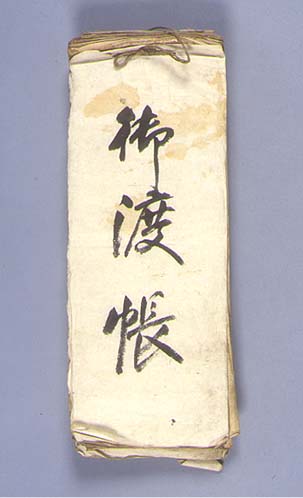 御渡帳